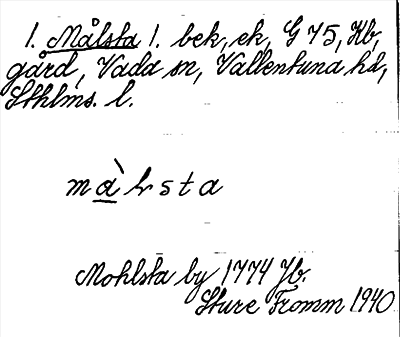 1. Målsta l. bek, ek, G 75, Kb,
gård, Vada sn, Vallentuna hd,
Sthlms. l.
màlsta
Mohlsta by 1774 Jb.
Sture Fromm 1940